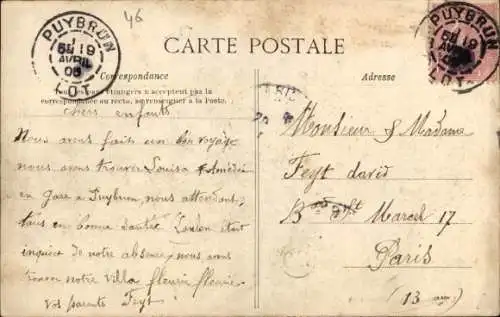 46
PUYBRUN
5E 19
AVRIL
05
LOT
CARTE POSTALE
PUYBRUN
5E 19
AVRIL
LOT
Correspondance
Tous les pays étrangers n'acceptent pas la
correspondance au recto, se renseigner à la Poste.
Adresse
chers enfants
Nous avons fait un bon voyage
nous avons trouver Louisa & Amédée
en gare a Puybrun, nous attendant,
tous en bonne santée était
inquiete de notre absence, nous avons
trouver notre villa fleurie fleurie
vos parents Feyt
Monsieur & Madame
Feyt david
Bd St Marcel 17
Paris
(13 arr)